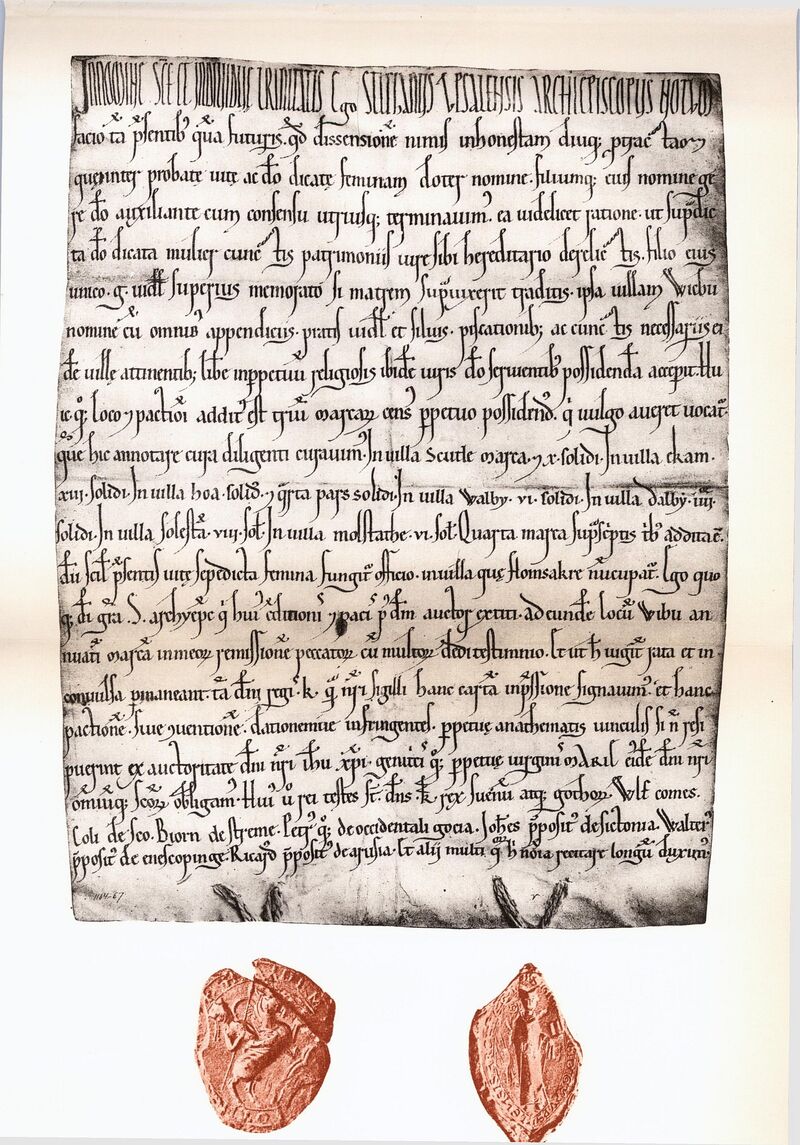 IN NOMINE SCE ET INDIVIDUE TRINITATIS Ego STEPHANUS VPSALENSIS ARCHIEPISCOPUS NOTUM
facio tā psentib; qua futuris. qd dissensionē nimis inhonestam diuq; ptractatam
que inter probate uite ac dō dicatę feminam doter nomine. filiumq; eius nomine ge
re dō auxiliante cum consensu utriusq; terminauim'. ea uidelicet ratione. ut supdic
ta dō dicata mulier cunctis patrimoniis iure sibi hereditario derelictis. filio eius
unico. g. uidl superius memorato si matrem supuixerit traditis. ipsa uillam Wiebu
nomine cū omnib; appendiciis. pratis uidl et siluis. piscationib; ac cunctis necessariis ei
dē uillę attinentib; libe inppetuū religiosis ibidē iuris dō seruientib; possidenda accepit. Hu
ic q; loco 7 pactioi addit' est triū marcar cens' ppetuo possidend'. q uulgo aueret uocat'
que hic annotare cura diligenti curauim'. In uilla Scutle marca. 7 x. solidi. In uilla ekam.
xiii. solidi. In uilla hoa. solid'. 7 qrta pars solidi. In uilla walby. vi. solidi. In uilla dalby. iiii.
solidi. In uilla solesta. viii. sol. In uilla molstathe. vi. sol. Quarta marca supscptis trib' addita ē.
dū scil psentis uitę sepedicta femina fungit' officio. in uilla quę flomsakre nūcupat'. Ego quo
q; di gra. S. archyepc q hui' editioni' 7 paci' p dm auctor extiti. ad eundē locū wibu an
nuatī marcā in meor remissionē peccator cū multor dedi testimnio. Et ut h iugit' rata et in
conuulsa pmaneant. tā dni regi'. k. q nri sigilli hanc cartā inpssione signauim'. et hanc
pactionē. siue 9uentionē. dationemue infringentes. ppetuę anathematis uinculis si n resi
puerint ex auctoritate dni nri ihu xpi. genitci' q; ppetuę uirgini' MARIE eidē dni nri
omiuq; scor obligam'. Hui' u rei testes st. dns. k. rex sueuū atq; gothor. Wlf comes.
Coli de seo. Biorn de streme. Petr' q; de occidentali gocia. Johes pposit' de sictonia. Walter'
pposit' de enescopinge. Ricard' pposit' de arusia. Et alii multi q h noia recitare longū duxim'.
1164-67